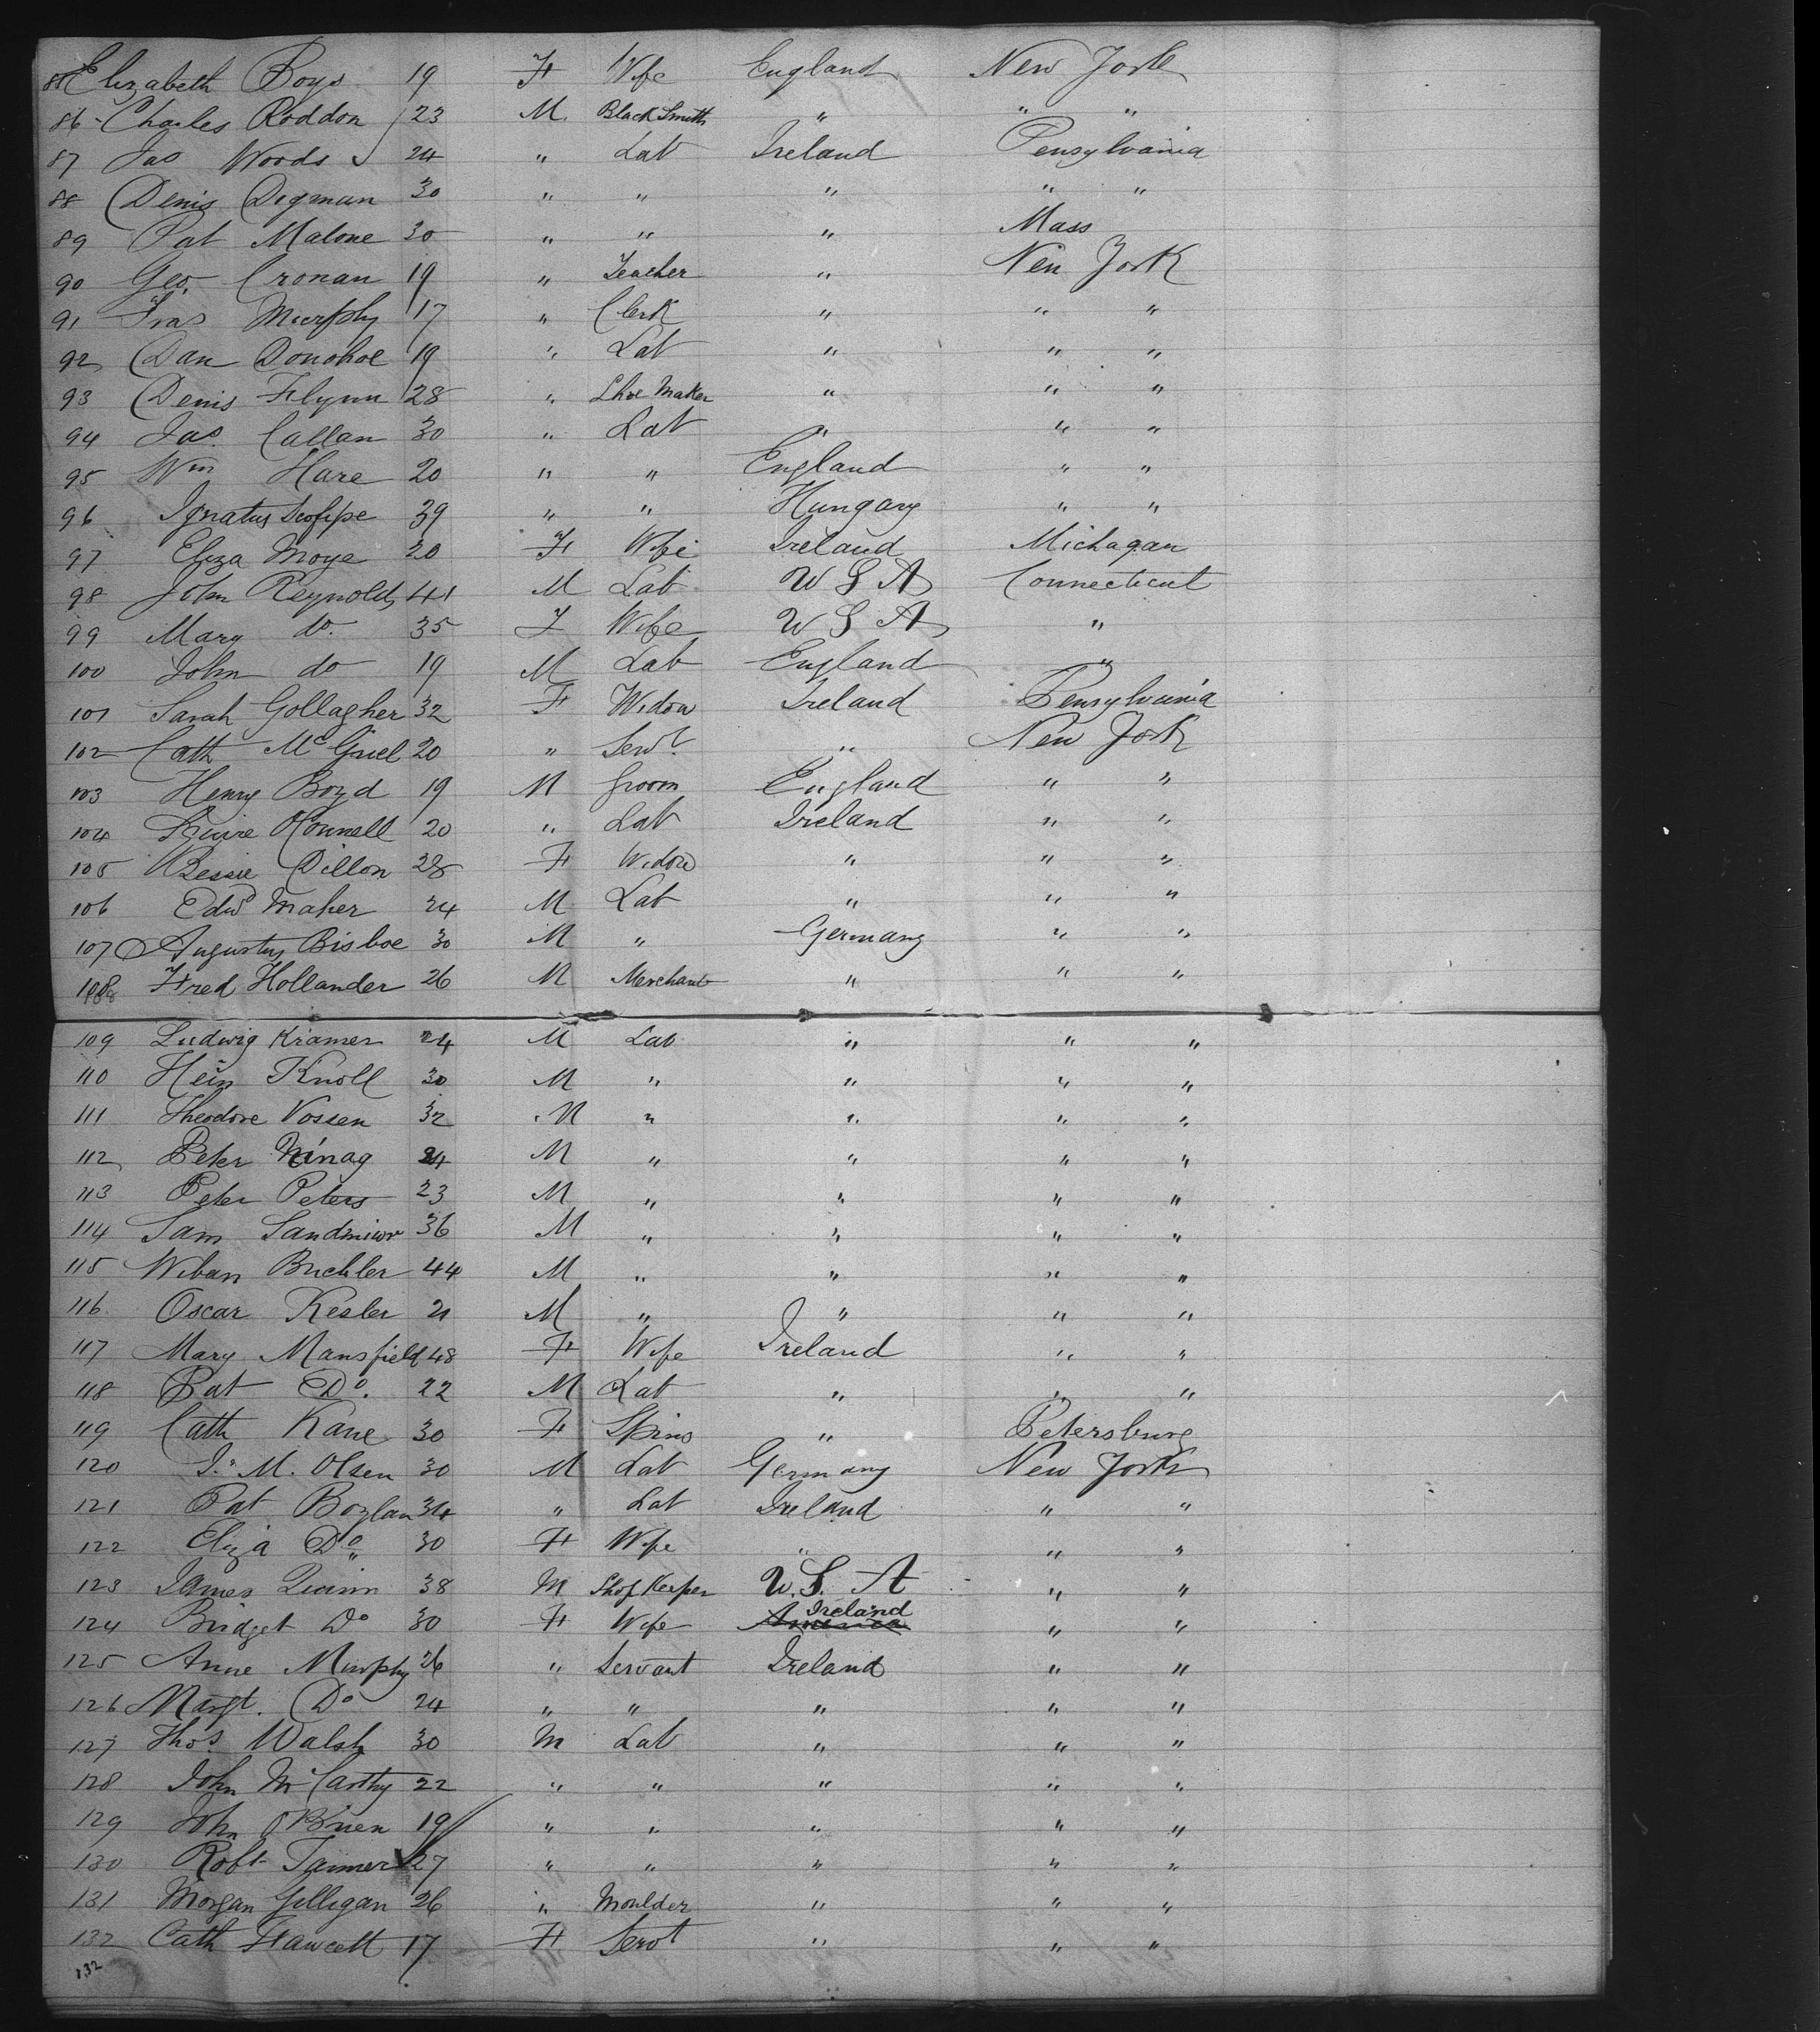 85 Elizabeth Boys 19 F Wife England New York
86 Charles Roddon 23 M. Black Smith " " "
87 Jas Woods 24 " Lab Ireland Pensylvania
88 Denis Digman 30 " " " " "
89 Pat Malone 30 " " " Mass
90 Geo. Cronan 19 " Teacher " New York
91 Fras Murphy 17 " Clerk " " "
92 Dan Donohoe 19 " Lab " " "
93 Denis Flynn 28 " Shoe Maker " " "
94 Jas. Callan 30 " Lab " " "
95 Wm Hare 20 " " England " "
96 Ignatus 39 " " Hungary " "
97 Eliza Moye 20 F Wife Ireland Michagan
98 John Reynolds 41 M Lab U S A Connecticut
99 Mary do. 35 F Wife U S A "
100 John do 19 M Lab England "
101 Sarah Gollagher 32 F Widow Ireland Pensylvania
102 Cath 20 " Servt. " New York
103 Henry Boyd 19 M Groom England " "
104 OConnell 20 " Lab Ireland " "
105 Bessie Dillon 28 F Widow " " "
106 Edwd Maher 24 M Lab " " "
107 Augustus Bisboe 30 M " Germany " "
108 Fred Hollander 26 M Merchant " " "
109 Ludwig Kramer 24 M Lab " " "
110 Hein Knoll 30 M " " " "
111 Theodore Vossen 32 M " " " "
112 Peter 24 M " " " "
113 Peter Peters 23 M " " " "
114 Sam 36 M " " " "
115 Buchler 44 M " " " "
116 Oscar Kesler 21 M " " " "
117 Mary Mansfield 48 F Wife Ireland " "
118 Pat Do. 22 M Lab " " "
119 Cath Kane 30 F Spins " Petersburg
120 J. M. Olsen 30 M Lab Germany New York
121 Pat Boylan 34 " Lab Ireland " "
122 Eliza Do 30 F Wife " " "
123 James Quinn 38 M Shop Keeper U. S. A " "
124 Bridget Do 30 F Wife America Ireland " "
125 Anne Murphy 26 " Servant Ireland " "
126 Margt. Do 24 " " " " "
127 Thos. Walsh 30 M Lab " " "
128 John McCarthy 22 " " " " "
129 John OBrien 19 " " " " "
130 Robt Tanner 27 " " " " "
131 Morgan Gilligan 26 " Moulder " " "
132 Cath Fawcett 17 F Servt " " "
132